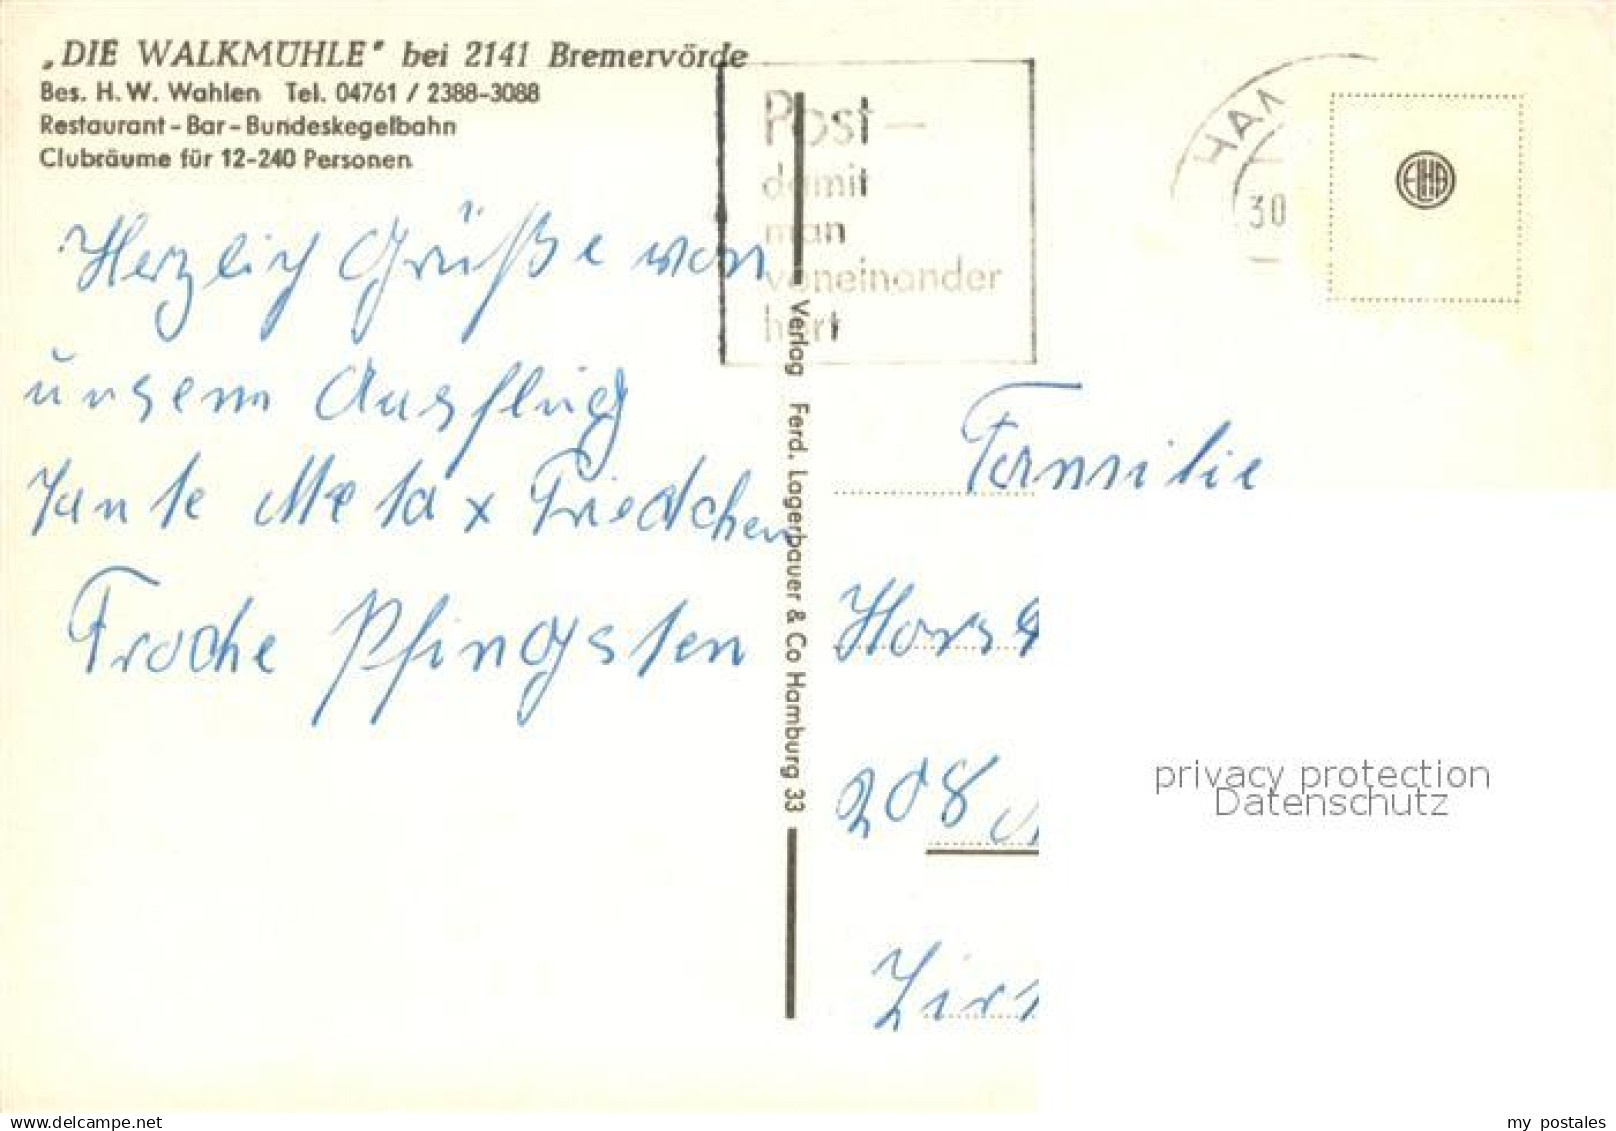 „DIE WALKMÜHLE" bei 2141 Bremervörde
Bes. H. W. Wahlen Tel. 04761 / 2388-3088
Restaurant - Bar - Bundeskegelbahn
Clubräume für 12-240 Personen
Herzlich Grüße von
unsem Ausflug
Tante Meta x Friedchen
Frohe Pfingsten
Post -
damit
man
voneinander
hört
HAM
30
ELHA
Verlag Ferd. Lagerbauer & Co Hamburg 33
Familie
Horst
208
privacy protection
Datenschutz
the delcampe website
my postales